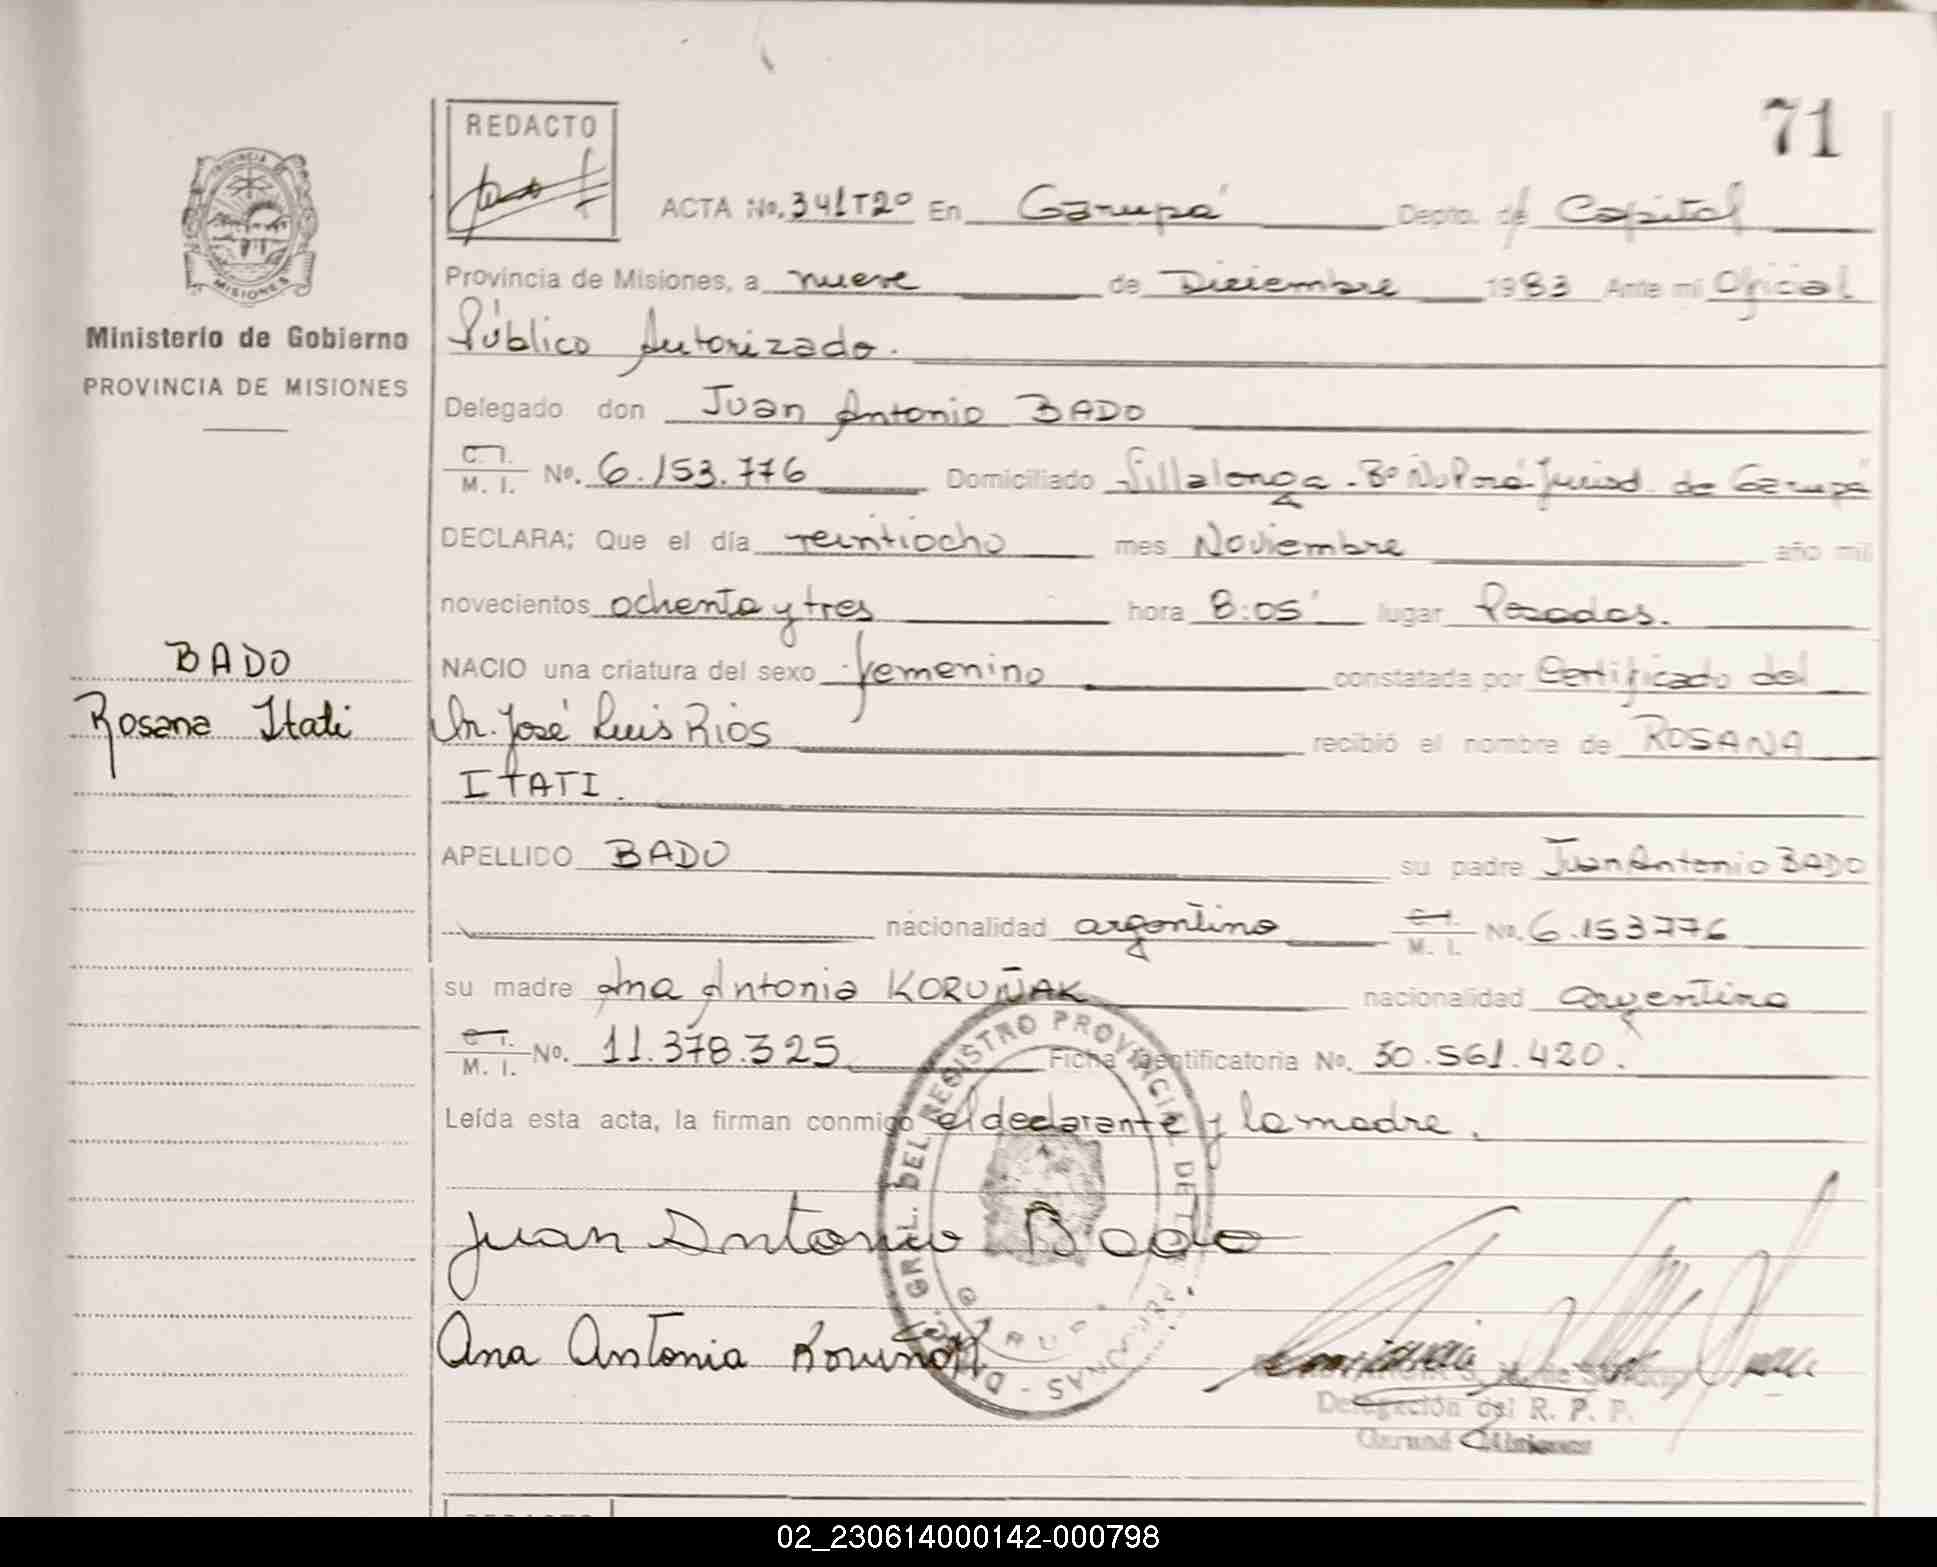 71
REDACTO
PROVINCIA
MISIONES
Ministerio de Gobierno
PROVINCIA DE MISIONES
BADO
Rosana Itati
ACTA No. 341T2º En Garupá Depto. de Capital
Provincia de Misiones, a nueve de Diciembre 1983 Ante mi Oficial
Público Autorizado.
Delegado don Juan Antonio BADO
C. I. M. I. No. 6.153.776 Domiciliado Villalonga - Bº ÑuPorá - Jurisd. de Garupá
DECLARA; Que el día veintiocho mes Noviembre año mil
novecientos ochenta y tres hora 8:05' lugar Posadas.
NACIO una criatura del sexo femenino constatada por Certificado del
Dr. José Luis Ríos recibió el nombre de ROSANA
ITATI.
APELLIDO BADO su padre Juan Antonio BADO
nacionalidad argentino C. I. M. I. No. 6.153776
su madre Ana Antonia KORUÑAK nacionalidad argentina
C. I. M. I. No. 11.378.325 Ficha Identificatoria No. 30.561.420.
Leída esta acta, la firman conmigo el declarante y la madre.
Juan Antonio Bado
Ana Antonia Koruñak
GRAL. DEL REGISTRO PROVINCIAL DE
Delegación del R. P. P.
Garupá Misiones
02_230614000142-000798